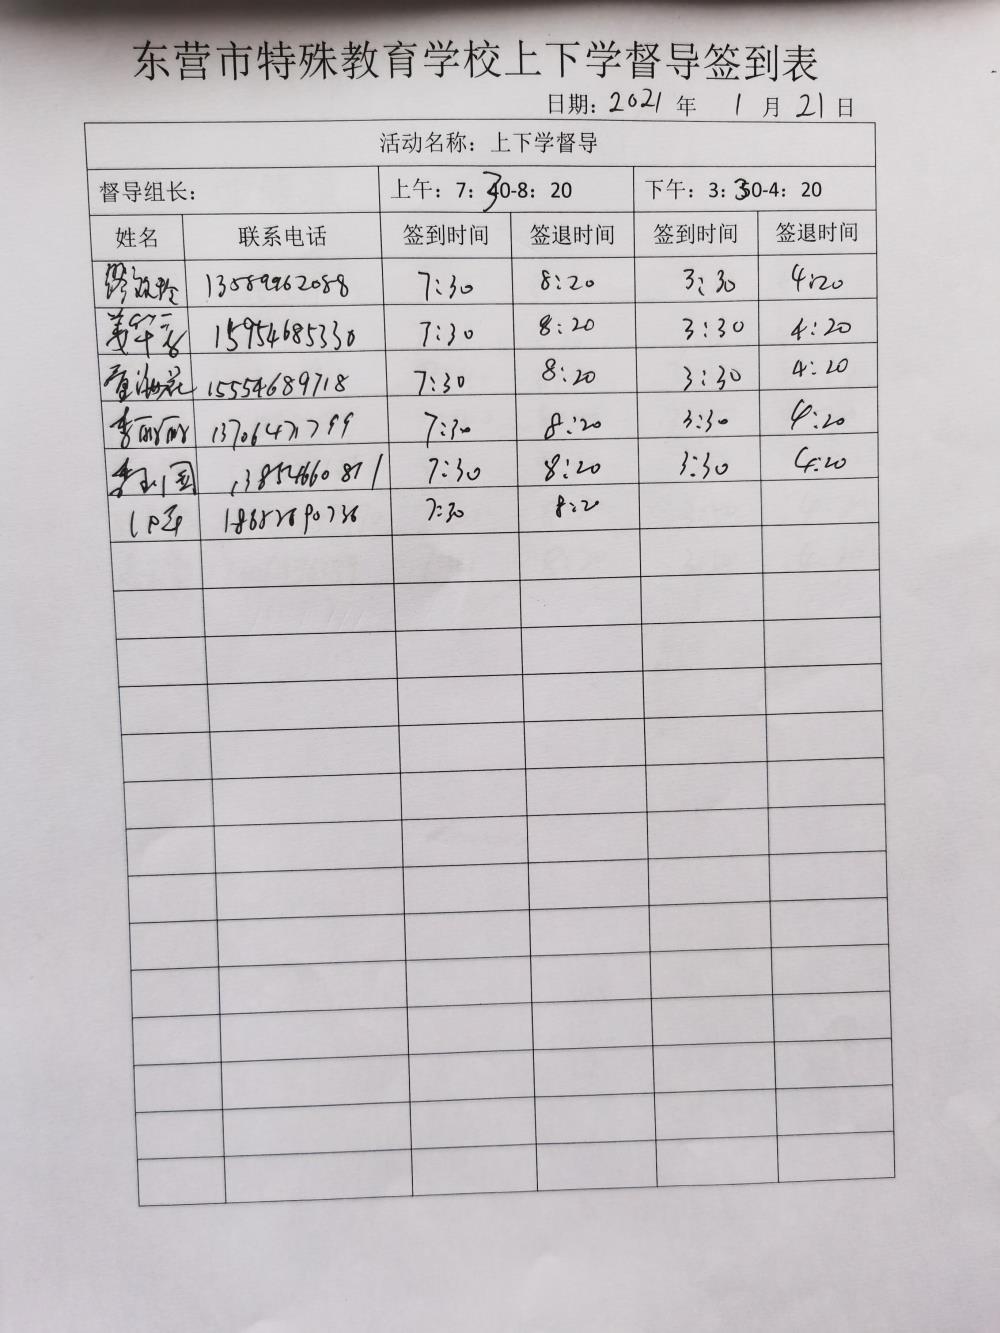 东营市特殊教育学校上下学督导签到表
日期：2021 年 1 月 21 日
活动名称：上下学督导
督导组长： 上午：7：30-8：20 下午：3：30-4：20
姓名 联系电话 签到时间 签退时间 签到时间 签退时间
13589962088 7:30 8:20 3:30 4:20
15954685330 7:30 8:20 3:30 4:20
15554689718 7:30 8:20 3:30 4:20
李丽丽 7:30 8:20 3:30 4:20
李 国 7:30 8:20 3:30 4:20
7:30 8:20